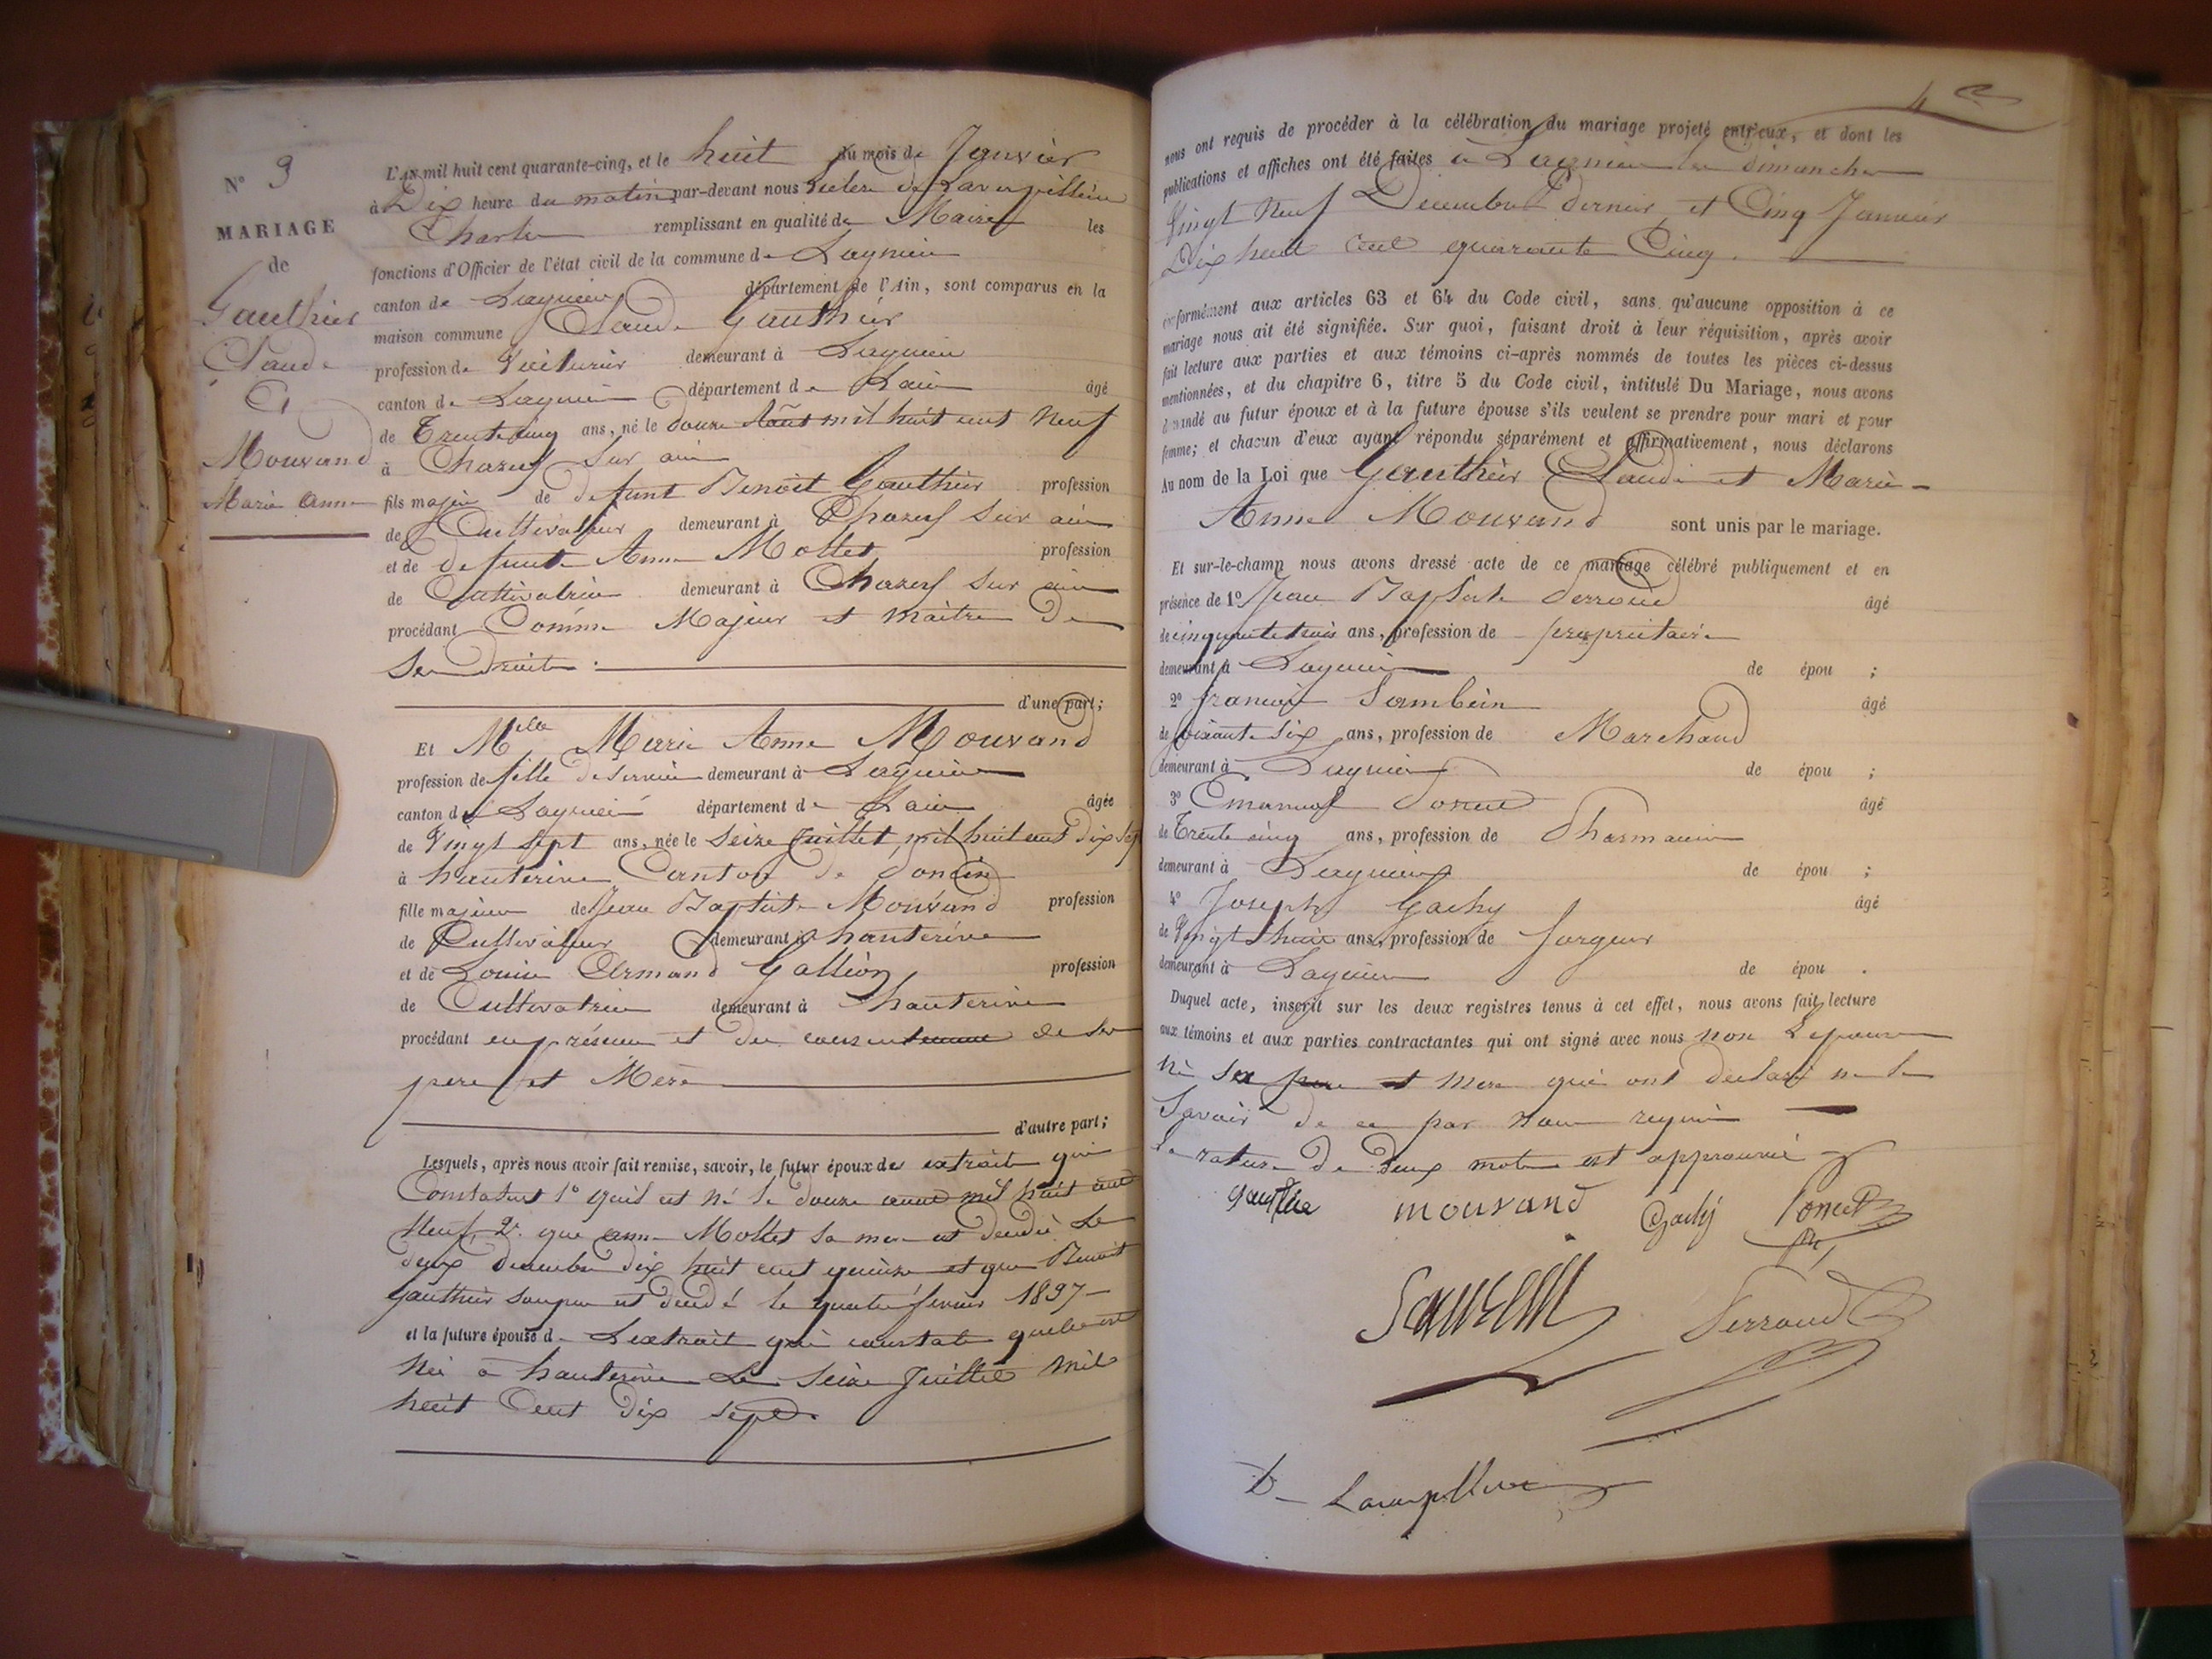 N° 3
MARIAGE
de
Gauthier
Claude
Et
Mouvand
Marie Anne
L'an mil huit cent quarante-cinq, et le huit du mois de Janvier
à Dix heure du matin par-devant nous de Lavernpillière
Charles remplissant en qualité de Maire les
fonctions d'Officier de l'état civil de la commune de Lagnieu
canton de Lagnieu département de l'Ain, sont comparus en la
maison commune Claude Gauthier
profession de Voiturier demeurant à Lagnieu
canton de Lagnieu département de Lain âgé
de Trente cinq ans, né le douze Août mil huit cent neuf
à Chazey Sur ain
fils majeur de defunt Benoît Gauthier profession
de Cultivateur demeurant à Chazey Sur ain
et de defunte Anne Mollet profession
de Cultivatrice demeurant à Chazey Sur ain
procédant Comme Majeur et maitre De
Ses Droits
d'une part;
Et Melle Marie Anne Mouvand
profession de fille De Service demeurant à Lagnieu
canton de Lagnieu département de Lain âgée
de Vingt Sept ans, née le Seize Juillet mil huit cent dix Sept
à hauterive Canton de
fille majeure de Jean Baptiste Mouvand profession
de Cultivateur demeurant à hauterive
et de Louise Ermand Gallion profession
de Cultivatrice demeurant à hauterive
procédant en présence et du consentement de Ses
pere et Mere
d'autre part;
Lesquels, après nous avoir fait remise, savoir, le futur époux des extraits qui
Constatent 1° quil est Né le douze aout mil huit cent
Neuf, 2° que anne Mollet Sa mere est décédée Le
deux decembre dix huit cent quinze et que Benoit
Gauthier Son pere est décédé le quatre fevrier 1837
et la future épouse de Lextrait qui constate quelle est
Née à hauterive Le Seize Juillet mil
huit Cent dix sept
4
nous ont requis de procéder à la célébration du mariage projeté entr'eux, et dont les
publications et affiches ont été faites a Lagnieu les dimanches
Vingt Neuf Decembre dernier et Cinq Janvier
Dix huit Cent quarante Cinq.
conformément aux articles 63 et 64 du Code civil, sans qu'aucune opposition à ce
mariage nous ait été signifiée. Sur quoi, faisant droit à leur réquisition, après avoir
fait lecture aux parties et aux témoins ci-après nommés de toutes les pièces ci-dessus
mentionnées, et du chapitre 6, titre 5 du Code civil, intitulé Du Mariage, nous avons
demandé au futur époux et à la future épouse s'ils veulent se prendre pour mari et pour
femme; et chacun d'eux ayant répondu séparément et affirmativement, nous déclarons
Au nom de la Loi que Gauthier Claude et Marie
Anne Mouvand sont unis par le mariage.
Et sur-le-champ nous avons dressé acte de ce mariage célébré publiquement et en
présence de 1° Jean Baptiste Serroud âgé
de cinquante trois ans, profession de propriétaire
demeurant à Lagnieu de épou ;
2° francois âgé
de Soixante Six ans, profession de Marchand
demeurant à Lagnieu de épou ;
3° Emanuel Poncet âgé
de Trente cinq ans, profession de Pharmacien
demeurant à Lagnieu de épou ;
4° Joseph Gachy âgé
de Vingt huit ans, profession de forgeur
demeurant à Lagnieu de épou .
Duquel acte, inscrit sur les deux registres tenus à cet effet, nous avons fait lecture
aux témoins et aux parties contractantes qui ont signé avec nous non Lepouse
Ni Sa pere et Mere qui ont déclaré ne le
Savoir de ce par Nous requis
la rature De deux mots est approuvée
gauthie mouvand Gachy Poncet
Ph.
Serroud
De Lavernpillière